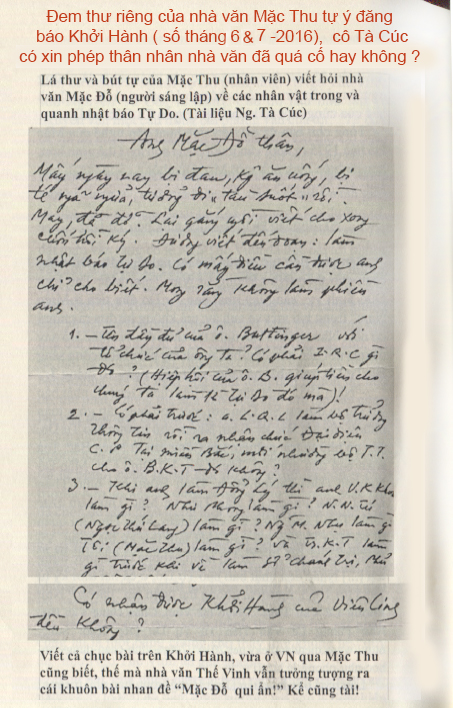 Đem thư riêng của nhà văn Mặc Thu tự ý đăng
báo Khởi Hành ( số tháng 6 & 7 -2016), cô Tà Cúc
có xin phép thân nhân nhà văn đã quá cố hay không ?
Lá thư và bút tự của Mặc Thu (nhân viên) viết hỏi nhà
văn Mặc Đỗ (người sáng lập) về các nhân vật trong và
quanh nhật báo Tự Do. (Tài liệu Ng. Tà Cúc)
Anh Mặc Đỗ thân,
Mấy ngày nay bị đau, kỵ ăn uống, bị
té ngã ngửa, tưởng đi "tàu suốt" rồi.
May, đã đỡ. Lại gắng ngồi viết cho xong
cuốn hồi ký. Đương viết đến đoạn: làm
nhật báo Tự Do. Có mấy điều cần được anh
chỉ cho biết. Mong rằng không làm phiền
anh.
1. – tên đầy đủ của ô. Buttinger với
tổ chức của ông ta? Có phải I.R.C gì
đó? (Hiệp hội của ô. B. giúp tiền cho
chúng ta làm tờ Tự Do đó mà)!
2. – Có phải trước: a. L.Q.L làm bộ trưởng
thông tin rồi ra nhận chức Đại diện
C.P Tại miền Bắc, mới nhường bộ T.T.
cho ô. B.K.T đó không?
3. – Khi anh làm Đổng Lý thì anh V.K.Khoan
làm gì? Như Phong làm gì? N.N.
làm gì? Ng M. Như làm gì
(Mặc Thu) làm gì? và B.K.T làm
gì trước khi về làm
Có nhận được Khởi Hành của Viên Linh
đều không?
Viết cả chục bài trên Khởi Hành, vừa ở VN qua Mặc Thu
cũng biết, thế mà nhà văn Thế Vinh vẫn tưởng tượng ra
cái khuôn bài nhan đề “Mặc Đỗ qui ẩn!” Kể cũng tài!